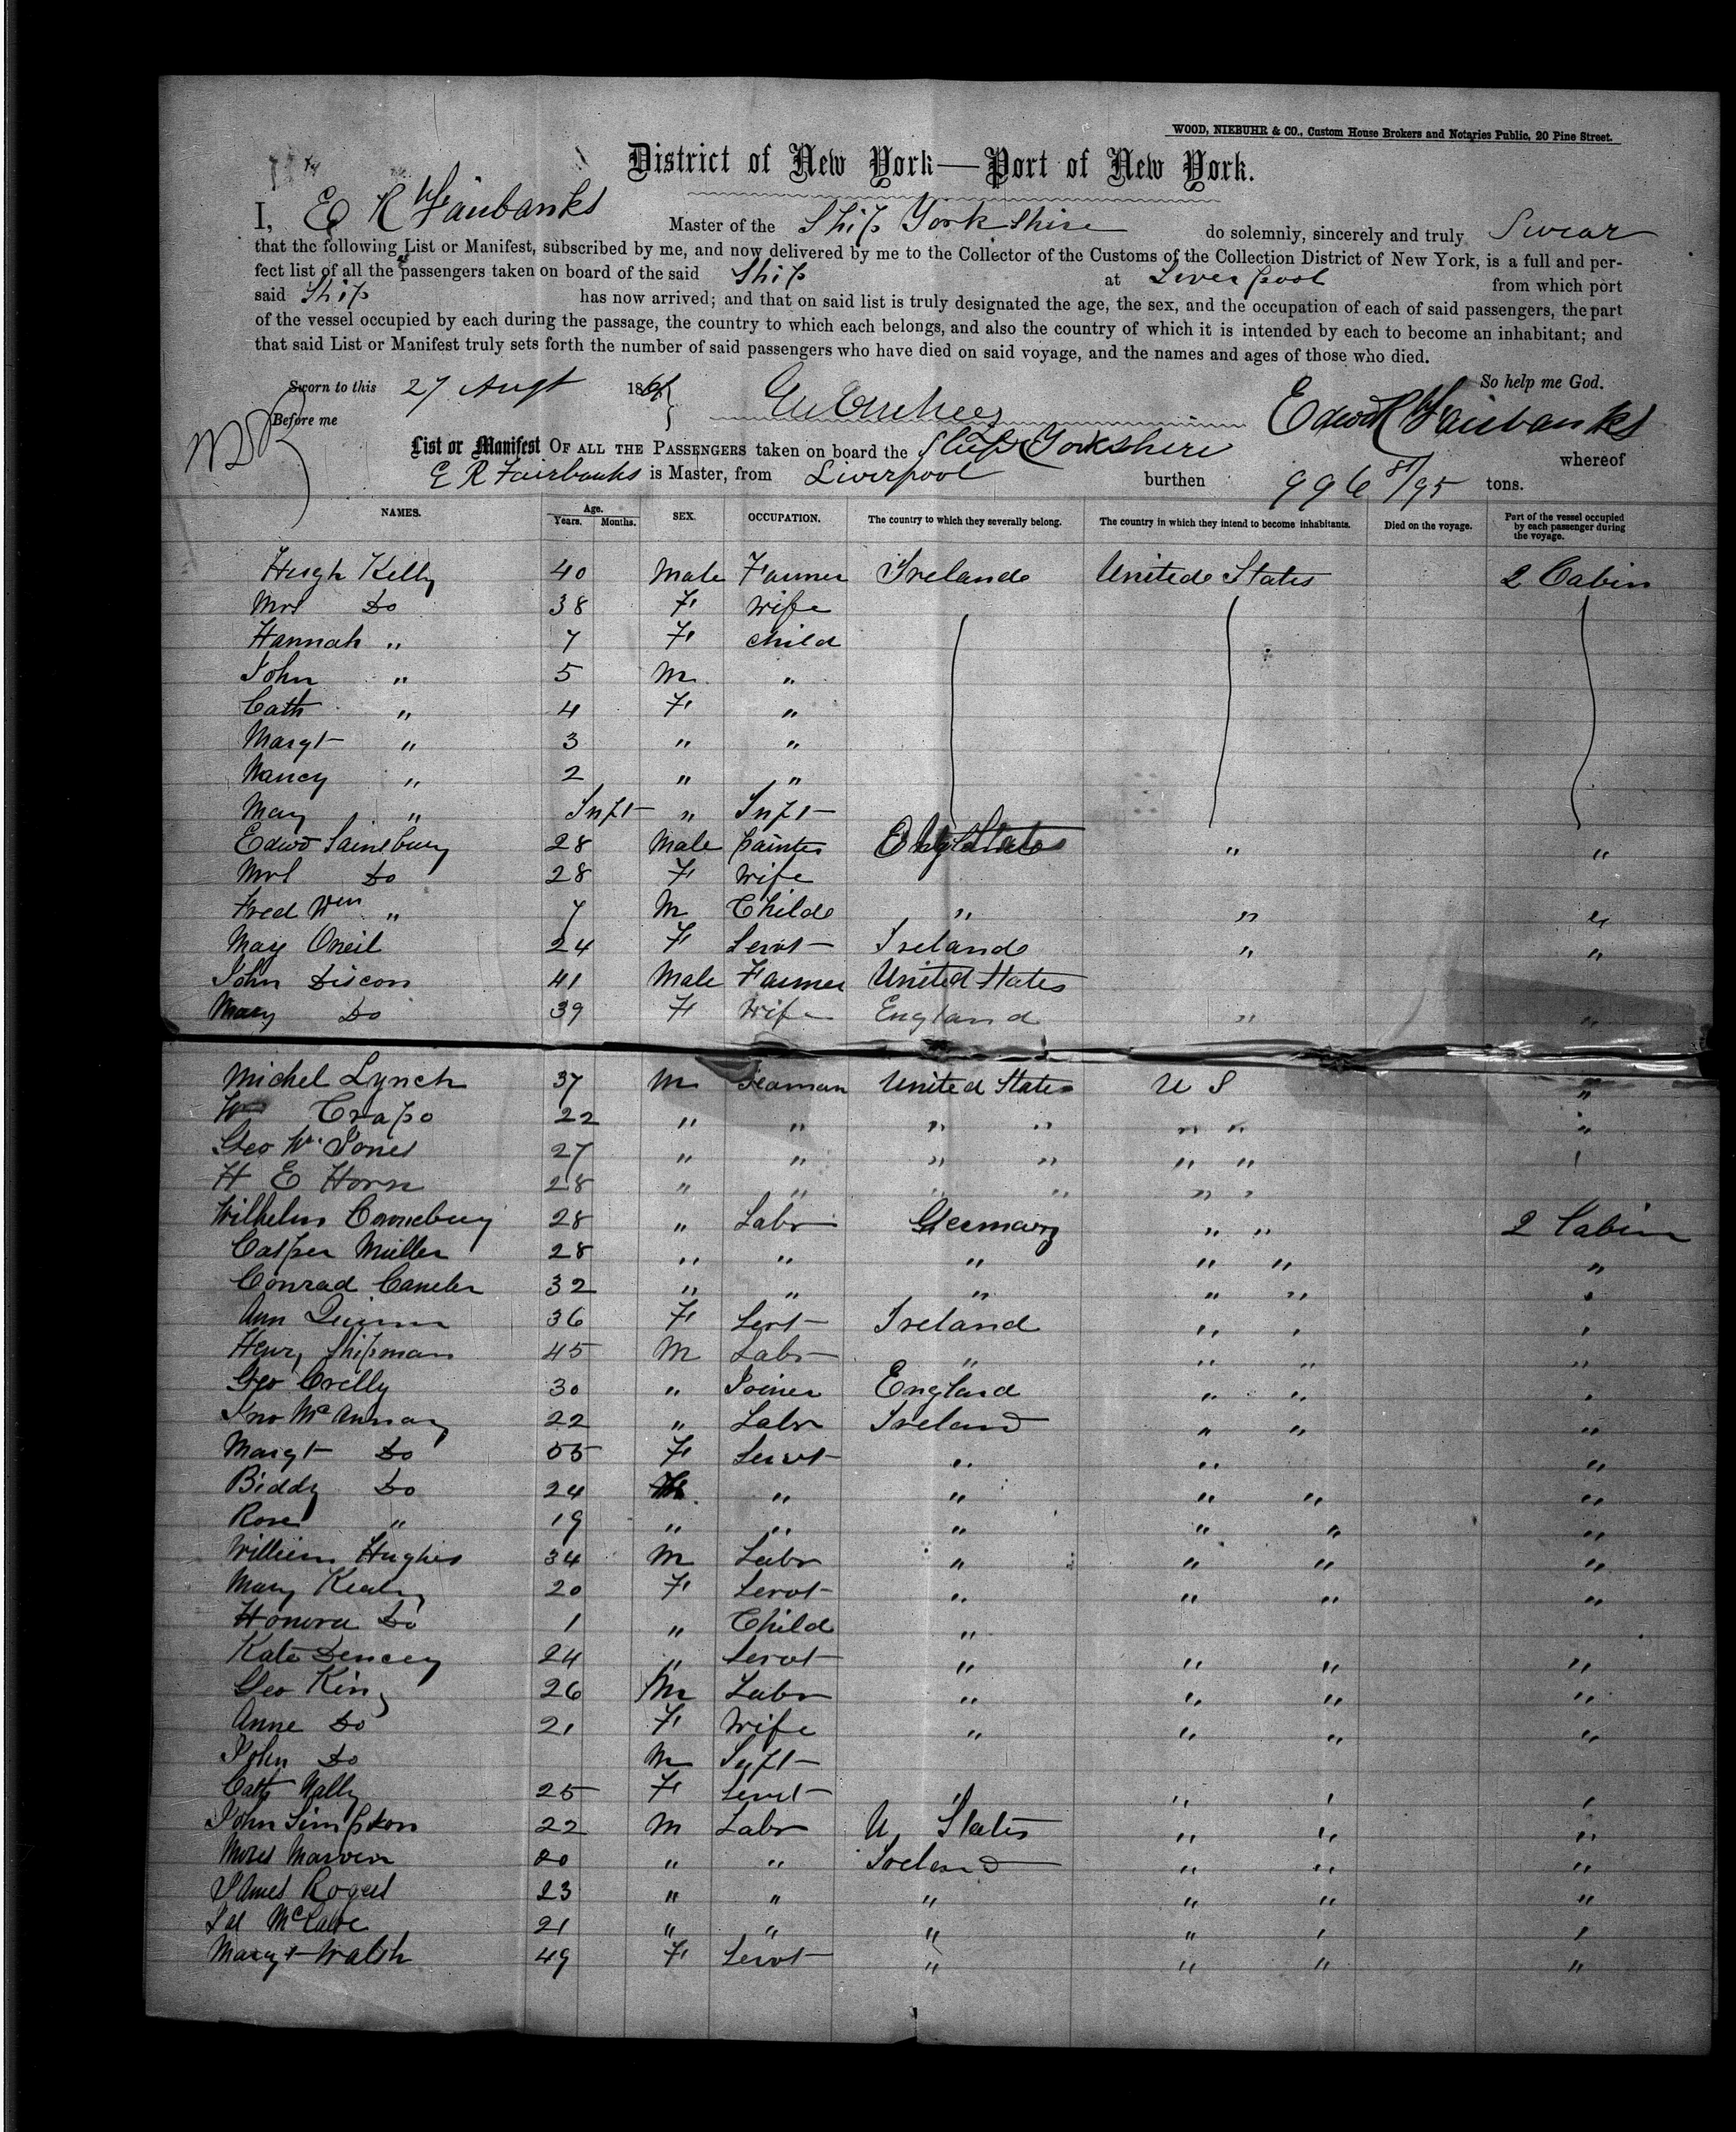 WOOD, NIEBUHR & CO., Custom House Brokers and Notaries Public, 20 Pine Street.
District of New York—Port of New York.
I, E R Fairbanks Master of the Ship Yorkshire do solemnly, sincerely and truly Swear
that the following List or Manifest, subscribed by me, and now delivered by me to the Collector of the Customs of the Collection District of New York, is a full and per-
fect list of all the passengers taken on board of the said Ship at Liverpool from which port
said Ship has now arrived; and that on said list is truly designated the age, the sex, and the occupation of each of said passengers, the part
of the vessel occupied by each during the passage, the country to which each belongs, and also the country of which it is intended by each to become an inhabitant; and
that said List or Manifest truly sets forth the number of said passengers who have died on said voyage, and the names and ages of those who died.
So help me God.
Sworn to this 27 Augt 186
Before me Edwd R Fairbanks
List or Manifest OF ALL THE PASSENGERS taken on board the Ship Yorkshire whereof
E R Fairbanks is Master, from Liverpool burthen 996 81/95 tons.
NAMES. Age. Years. Months. SEX. OCCUPATION. The country to which they severally belong. The country in which they intend to become inhabitants. Died on the voyage. Part of the vessel occupied by each passenger during the voyage.
Hugh Kelly 40 Male Farmer Ireland United States 2 Cabin
Mrs Do 38 F Wife
Hannah " 7 F Child
John " 5 M "
Cath " 4 F "
Margt " 3 " "
Nancy " 2 " "
May " Inft " Inft
Edwd Sainsbury 28 Male Painter " "
Mrs Do 28 F Wife
Fred Wm " 7 M Child " " "
May Oneil 24 F Servt Ireland " "
John Discon 41 Male Farmer United States
Mary Do 39 F Wife England " "
Michel Lynch 37 M Seaman United States U S "
Wm Crapo 22 " " " " " " "
Geo Wm Jones 27 " " " " " " "
H E Horn 28 " " " " " "
Wilhelm 28 " Labr Germany " " 2 Cabin
Casper Muller 28 " " " " " "
Conrad 32 " " " " " "
Ann Quinn 36 F Servt Ireland " " "
Henry Shipman 45 M Labr " " " "
Geo Crelly 30 " Joiner England " " "
Jno 22 " Labr Ireland " " "
Margt Do 55 F Servt " " "
Biddy Do 24 " " " " "
Rose " 19 " " " " " "
William Hughes 34 M Labr " " " "
Mary 20 F Servt " " " "
Honora Do 1 " Child "
Kate 24 " Servt " " " "
Geo King 26 M Labr " " " "
Anne Do 21 F Wife " " " "
John Do M Inft
Cath Nally 25 F Servt " " " "
John Simpson 22 M Labr U States " " "
Moses 20 " " Ireland " " "
James Rogers 23 " " " " " "
Jas McCabe 21 " " " " " "
Margt Walsh 49 F Servt " " " "